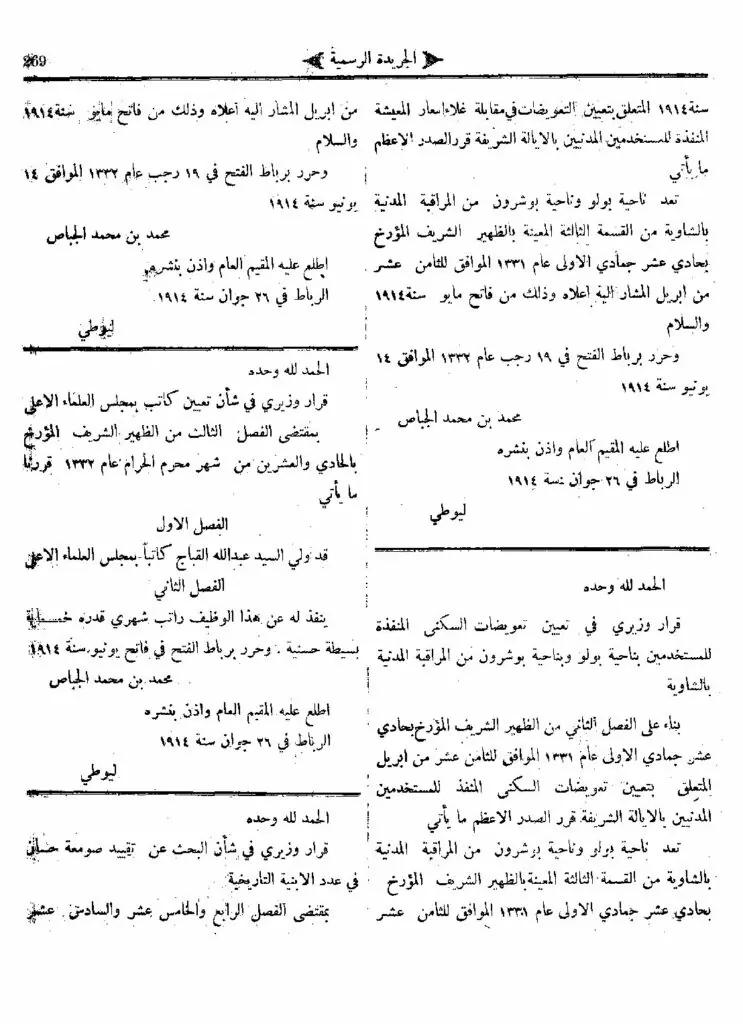 الجريدة الرسمية
269
سنة ١٩١٤ المتعلق بتعيين التعويضات في مقابلة غلاء اسعار المعيشة
المنفذة للمستخدمين المدنيين بالايالة الشريفة قرر الصدر الاعظم
ما يأتي
تعد ناحية بولو وناحية بوشرون من المراقبة المدنية
بالشاوية من القسمة الثالثة المعينة بالظهير الشريف المؤرخ
بحادي عشر جمادي الاولى عام ١٣٣١ الموافق للثامن عشر
من ابريل المشار الية اعلاه وذلك من فاتح مايو سنة ١٩١٤
والسلام
وحرر برباط الفتح في ١٩ رجب عام ١٣٣٢ الموافق ١٤
يونيو سنة ١٩١٤
محمد بن محمد الجباص
اطلع عليه المقيم العام واذن بنشره
الرباط في ٢٦ جوان سنة ١٩١٤
ليوطي
الحمد لله وحده
قرار وزيري في تعيين تعويضات السكنى المنفذة
للمستخدمين بناحية بولو وبناحية بوشرون من المراقبة المدنية
بالشاوية
بناء على الفصل الثاني من الظهير الشريف المؤرخ بحادي
عشر جمادي الاولى عام ١٣٣١ الموافق للثامن عشر من ابريل
المتعلق بتعيين تعويضات السكنى المنفذ للمستخدمين
المدنيين بالايالة الشريفة قرر الصدر الاعظم ما يأتي
تعد ناحية بولو وناحية بوشرون من المراقبة المدنية
بالشاوية من القسمة الثالثة المعينة بالظهير الشريف المؤرخ
بحادي عشر جمادي الاولى عام ١٣٣١ الموافق للثامن عشر
من ابريل المشار اليه اعلاه وذلك من فاتح مايو سنة ١٩١٤
والسلام
وحرر برباط الفتح في ١٩ رجب عام ١٣٣٢ الموافق ١٤
يونيو سنة ١٩١٤
محمد بن محمد الجباص
اطلع عليه المقيم العام واذن بنشره
الرباط في ٢٦ جوان سنة ١٩١٤
ليوطي
الحمد لله وحده
قرار وزيري في شأن تعيين كاتب بمجلس العلماء الاعلى
بمقتضى الفصل الثالث من الظهير الشريف المؤرخ
بالحادي والعشرين من شهر محرم الحرام عام ١٣٣٢ قررنا
ما يأتي
الفصل الاول
قد ولي السيد عبدالله القباج كاتباً بمجلس العلماء الاعلى
الفصل الثاني
ينفذ له عن هذا الوظيف راتب شهري قدره خمسماية
بسيطة حسنية . وحرر برباط الفتح في فاتح يونيو سنة ١٩١٤
محمد بن محمد الجباص
اطلع عليه المقيم العام واذن بنشره
الرباط في ٢٦ جوان سنة ١٩١٤
ليوطي
الحمد لله وحده
قرار وزيري في شأن البحث عن تقييد صومعة حسان
في عدد الابنية التاريخية
بمقتضى الفصل الرابع والخامس عشر والسادس عشر